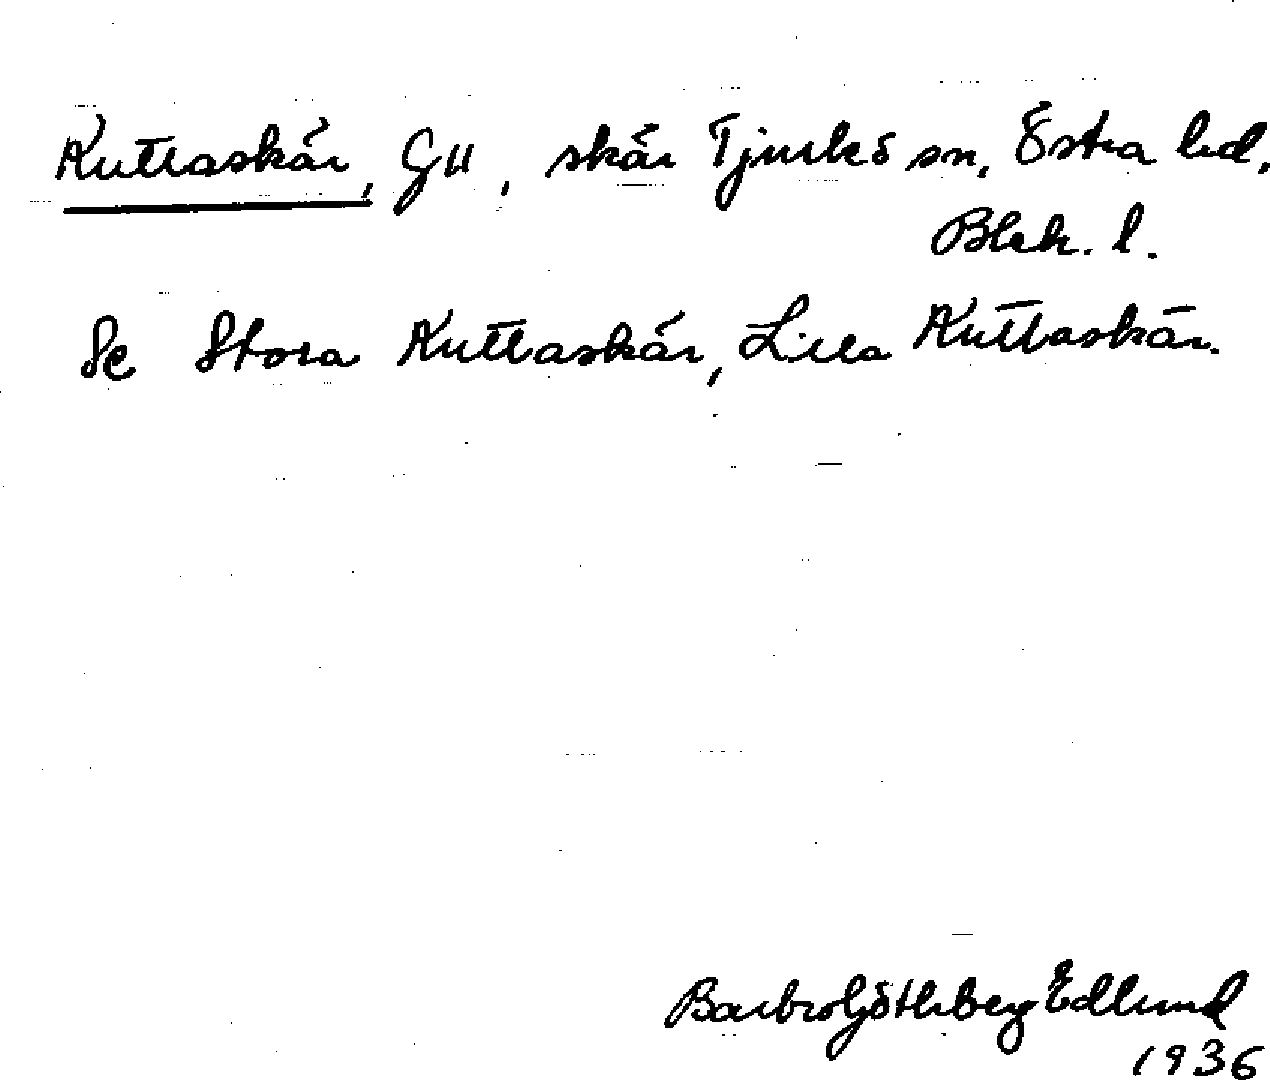 Kuttaskär, Gu, skär Tjurkö sn, Östra hd,
Blek. l.
Se Stora Kuttaskär, Lilla Kuttaskär.
Barbro Göthberg Edlund
1936